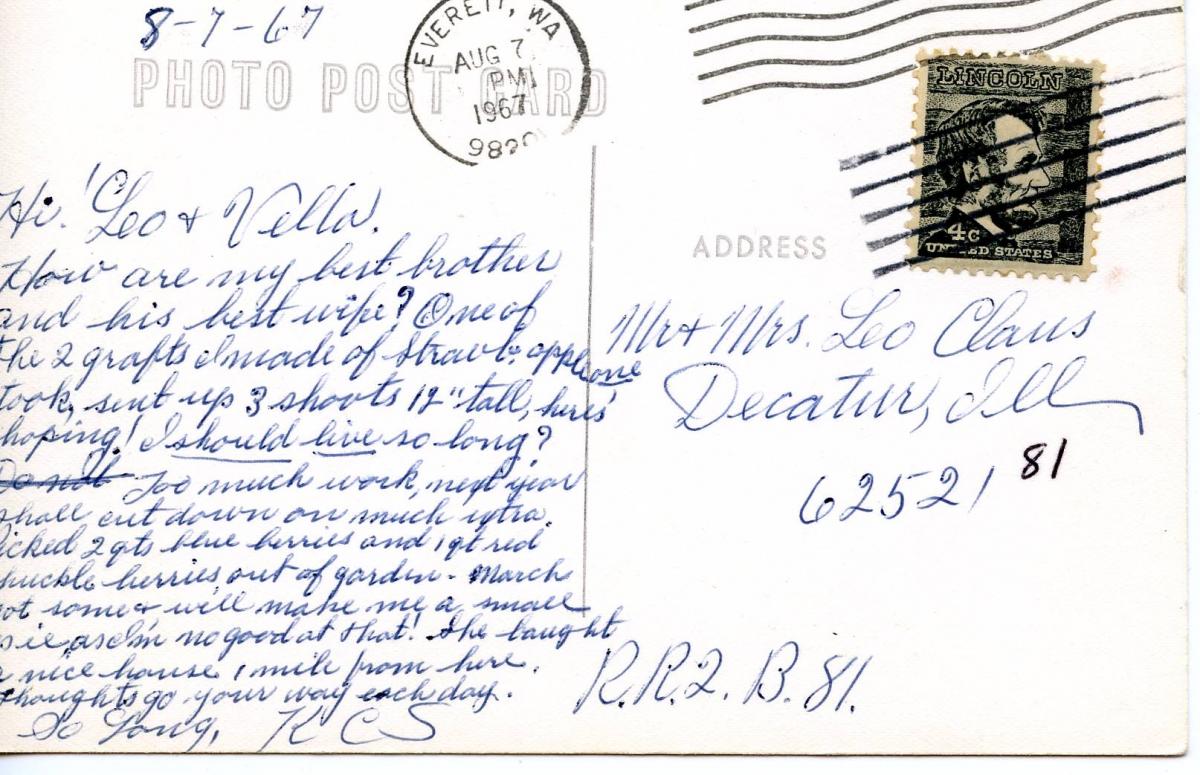 8-7-67
PHOTO POST CARD
EVERETT, WA
AUG 7
PM
1967
LINCOLN
4c
UNITED STATES
Hi! Leo & Vella.
How are my best brother
and his best wife? One of
the 2 grafts I made of Strawb. apple one
took, sent up 3 shoots 12" tall, here's
hoping! I should live so long?
Do not Too much work, next year
shall cut down on much extra.
Picked 2 qts blue berries and 1 qt red
huckle berries out of garden - March
got some & will make me a small
pie, as I'm no good at that! She baught
a nice house 1 mile from here.
Thoughts go your way each day.
So Long, K C S
ADDRESS
Mr & Mrs. Leo Claus
Decatur, Ill
62521 81
R.R.2. B. 81.